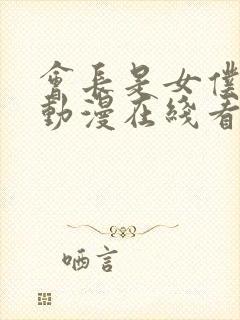 會長是女僕
動漫在綫看
哂言